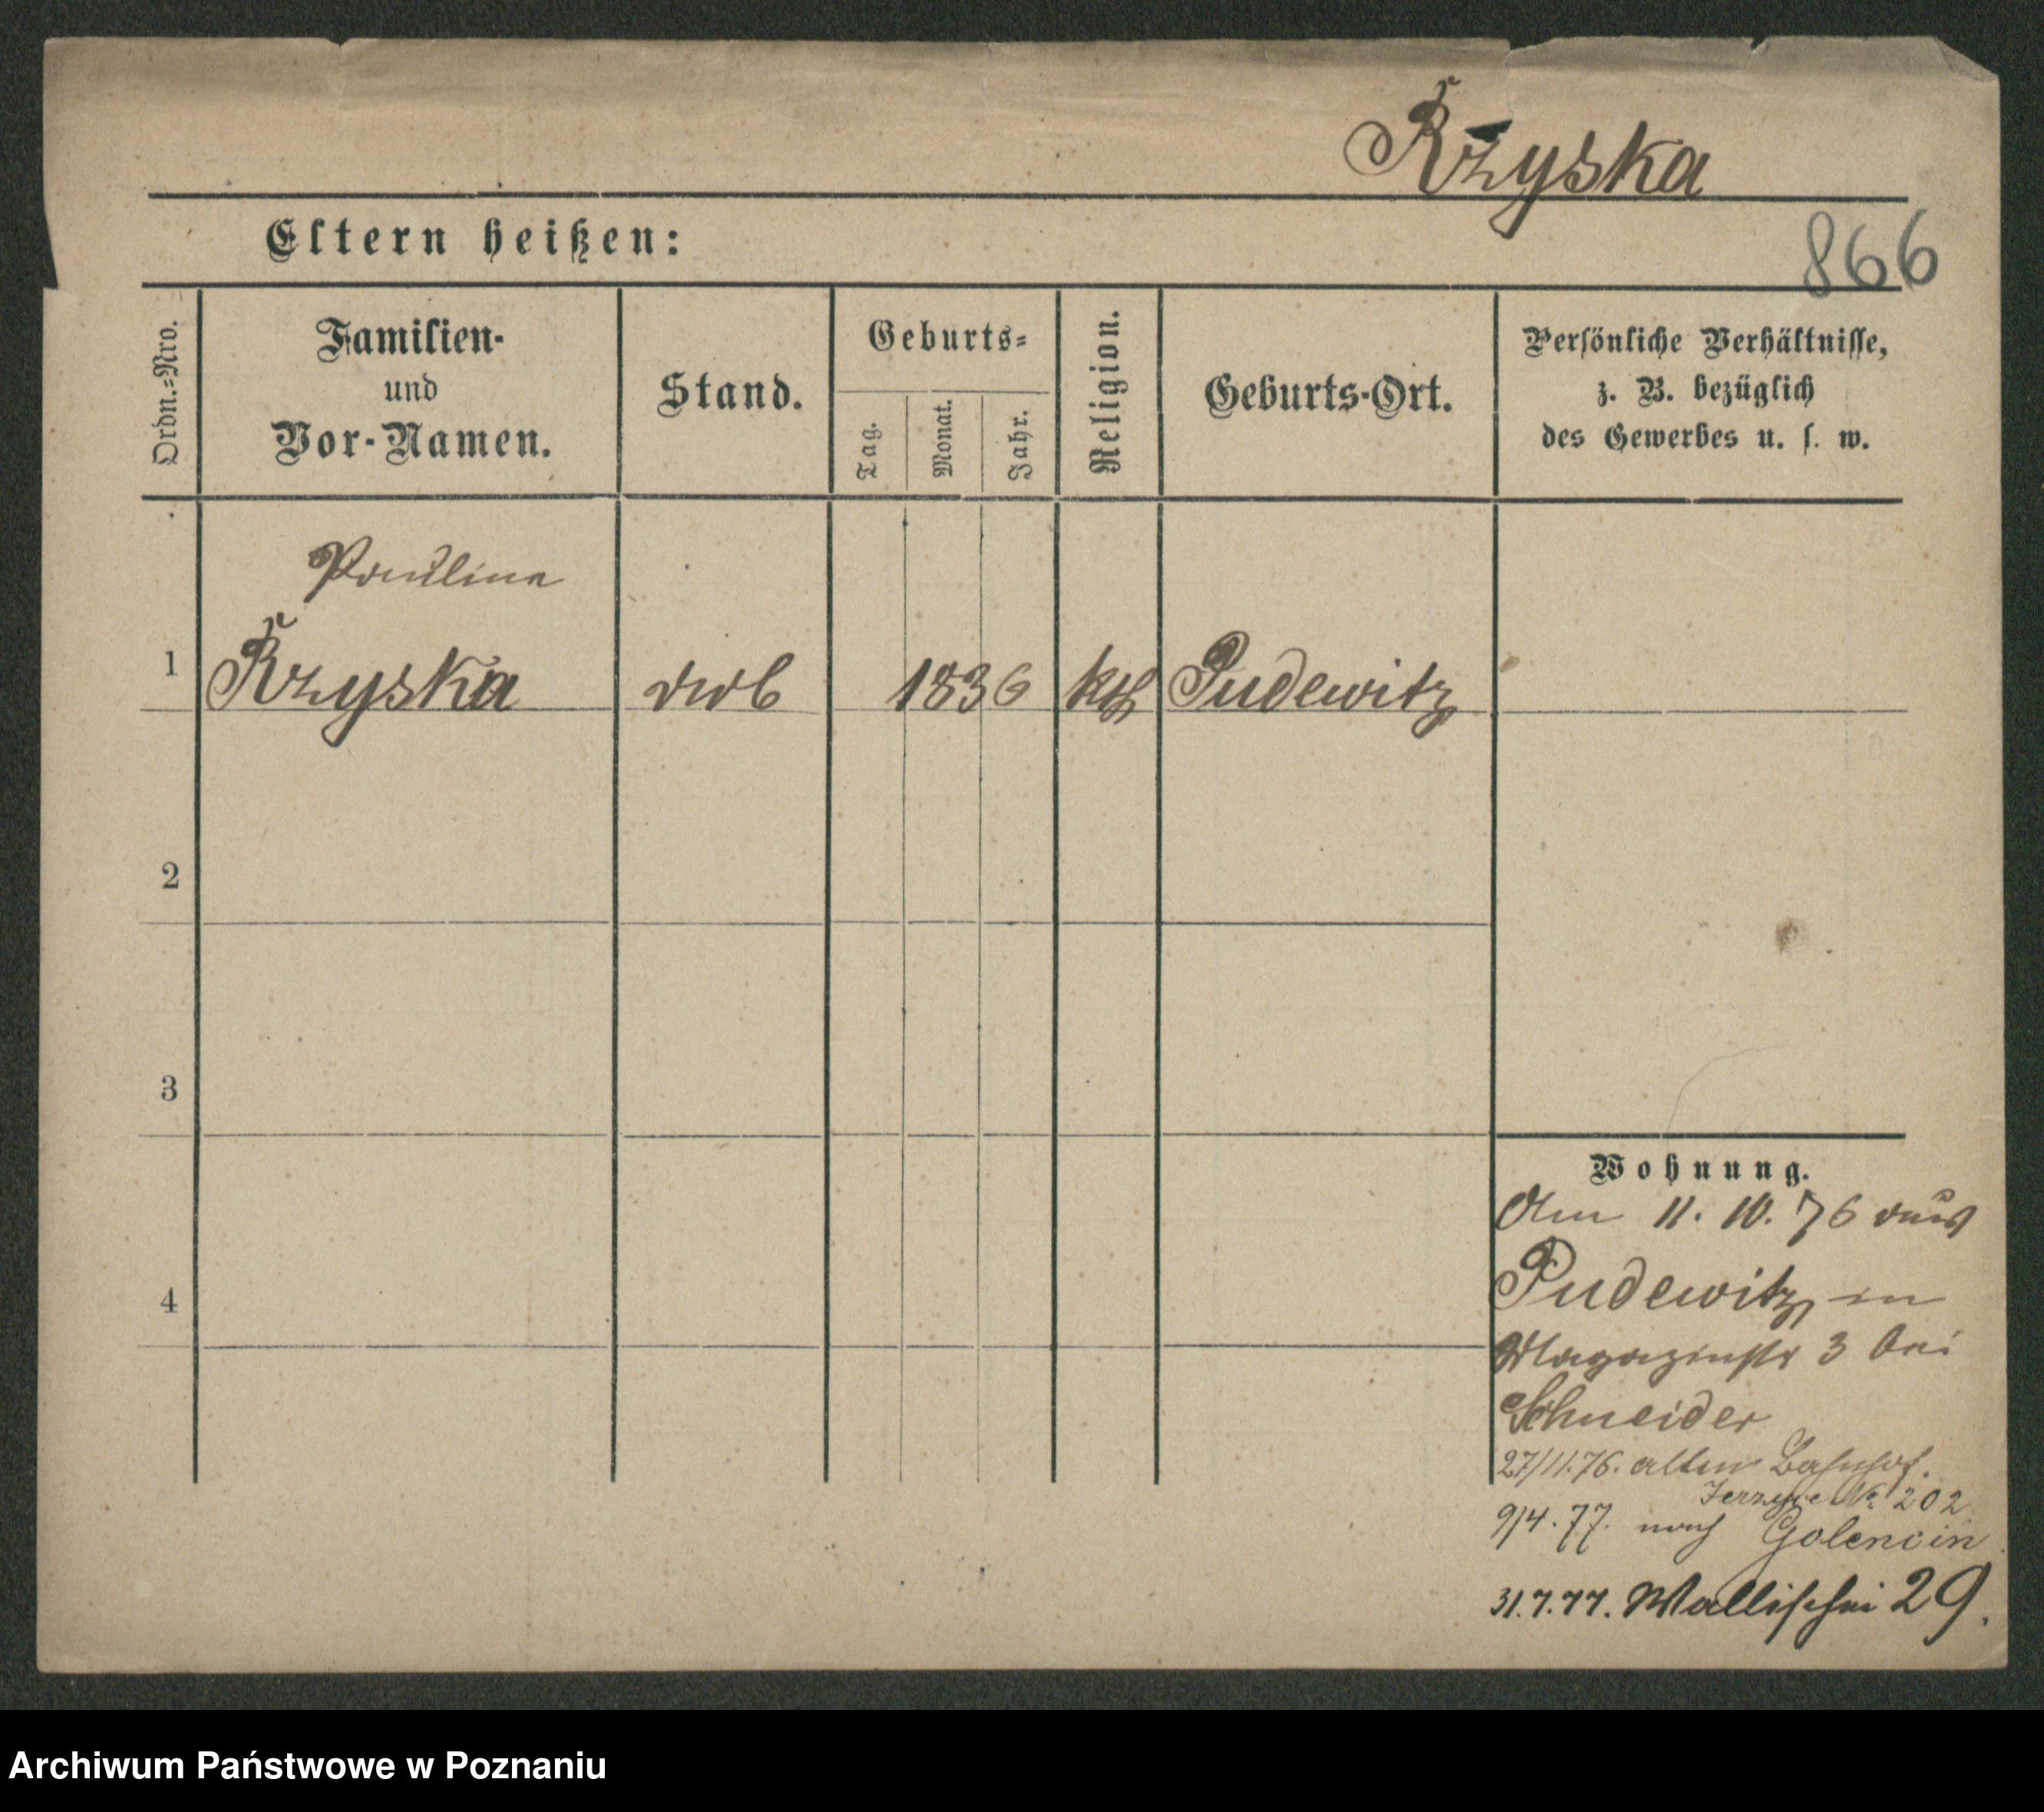 Rzyska
Eltern heißen:
866
Ordn.=Nro.
Familien-
und
Vor-Namen.
Stand.
Geburts=
Tag.
Monat.
Jahr.
Religion.
Geburts-Ort.
Persönliche Verhältnisse,
z. B. bezüglich
des Gewerbes u. s. w.
Paulina
1 Rzyska 1836 kth Pudewitz
2
3
4
Wohnung.
Am 11. 10. 76 aus
Pudewitz in
Magazinstr 3 bei
Schneider
27/11.76. alten Bahnhof.
No 202
9/4.77. nach Golencin
31.7.77. Wallischei 29.
Archiwum Państwowe w Poznaniu